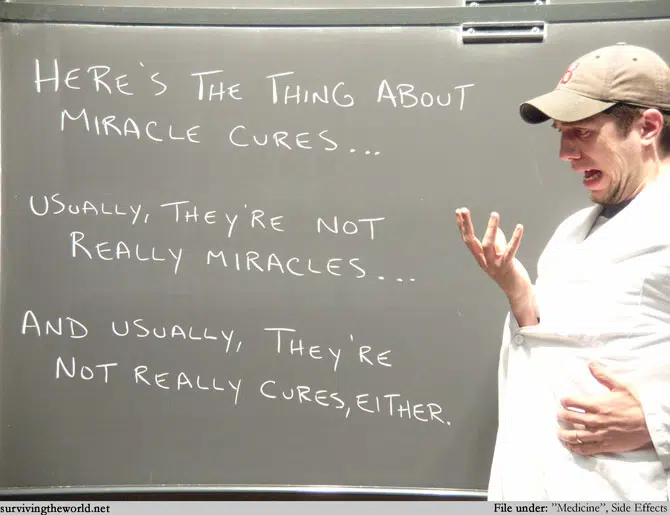 HERE'S THE THING ABOUT
MIRACLE CURES...
USUALLY, THEY'RE NOT
REALLY MIRACLES...
AND USUALLY, THEY'RE
NOT REALLY CURES, EITHER.
survivingtheworld.net
File under: "Medicine", Side Effects